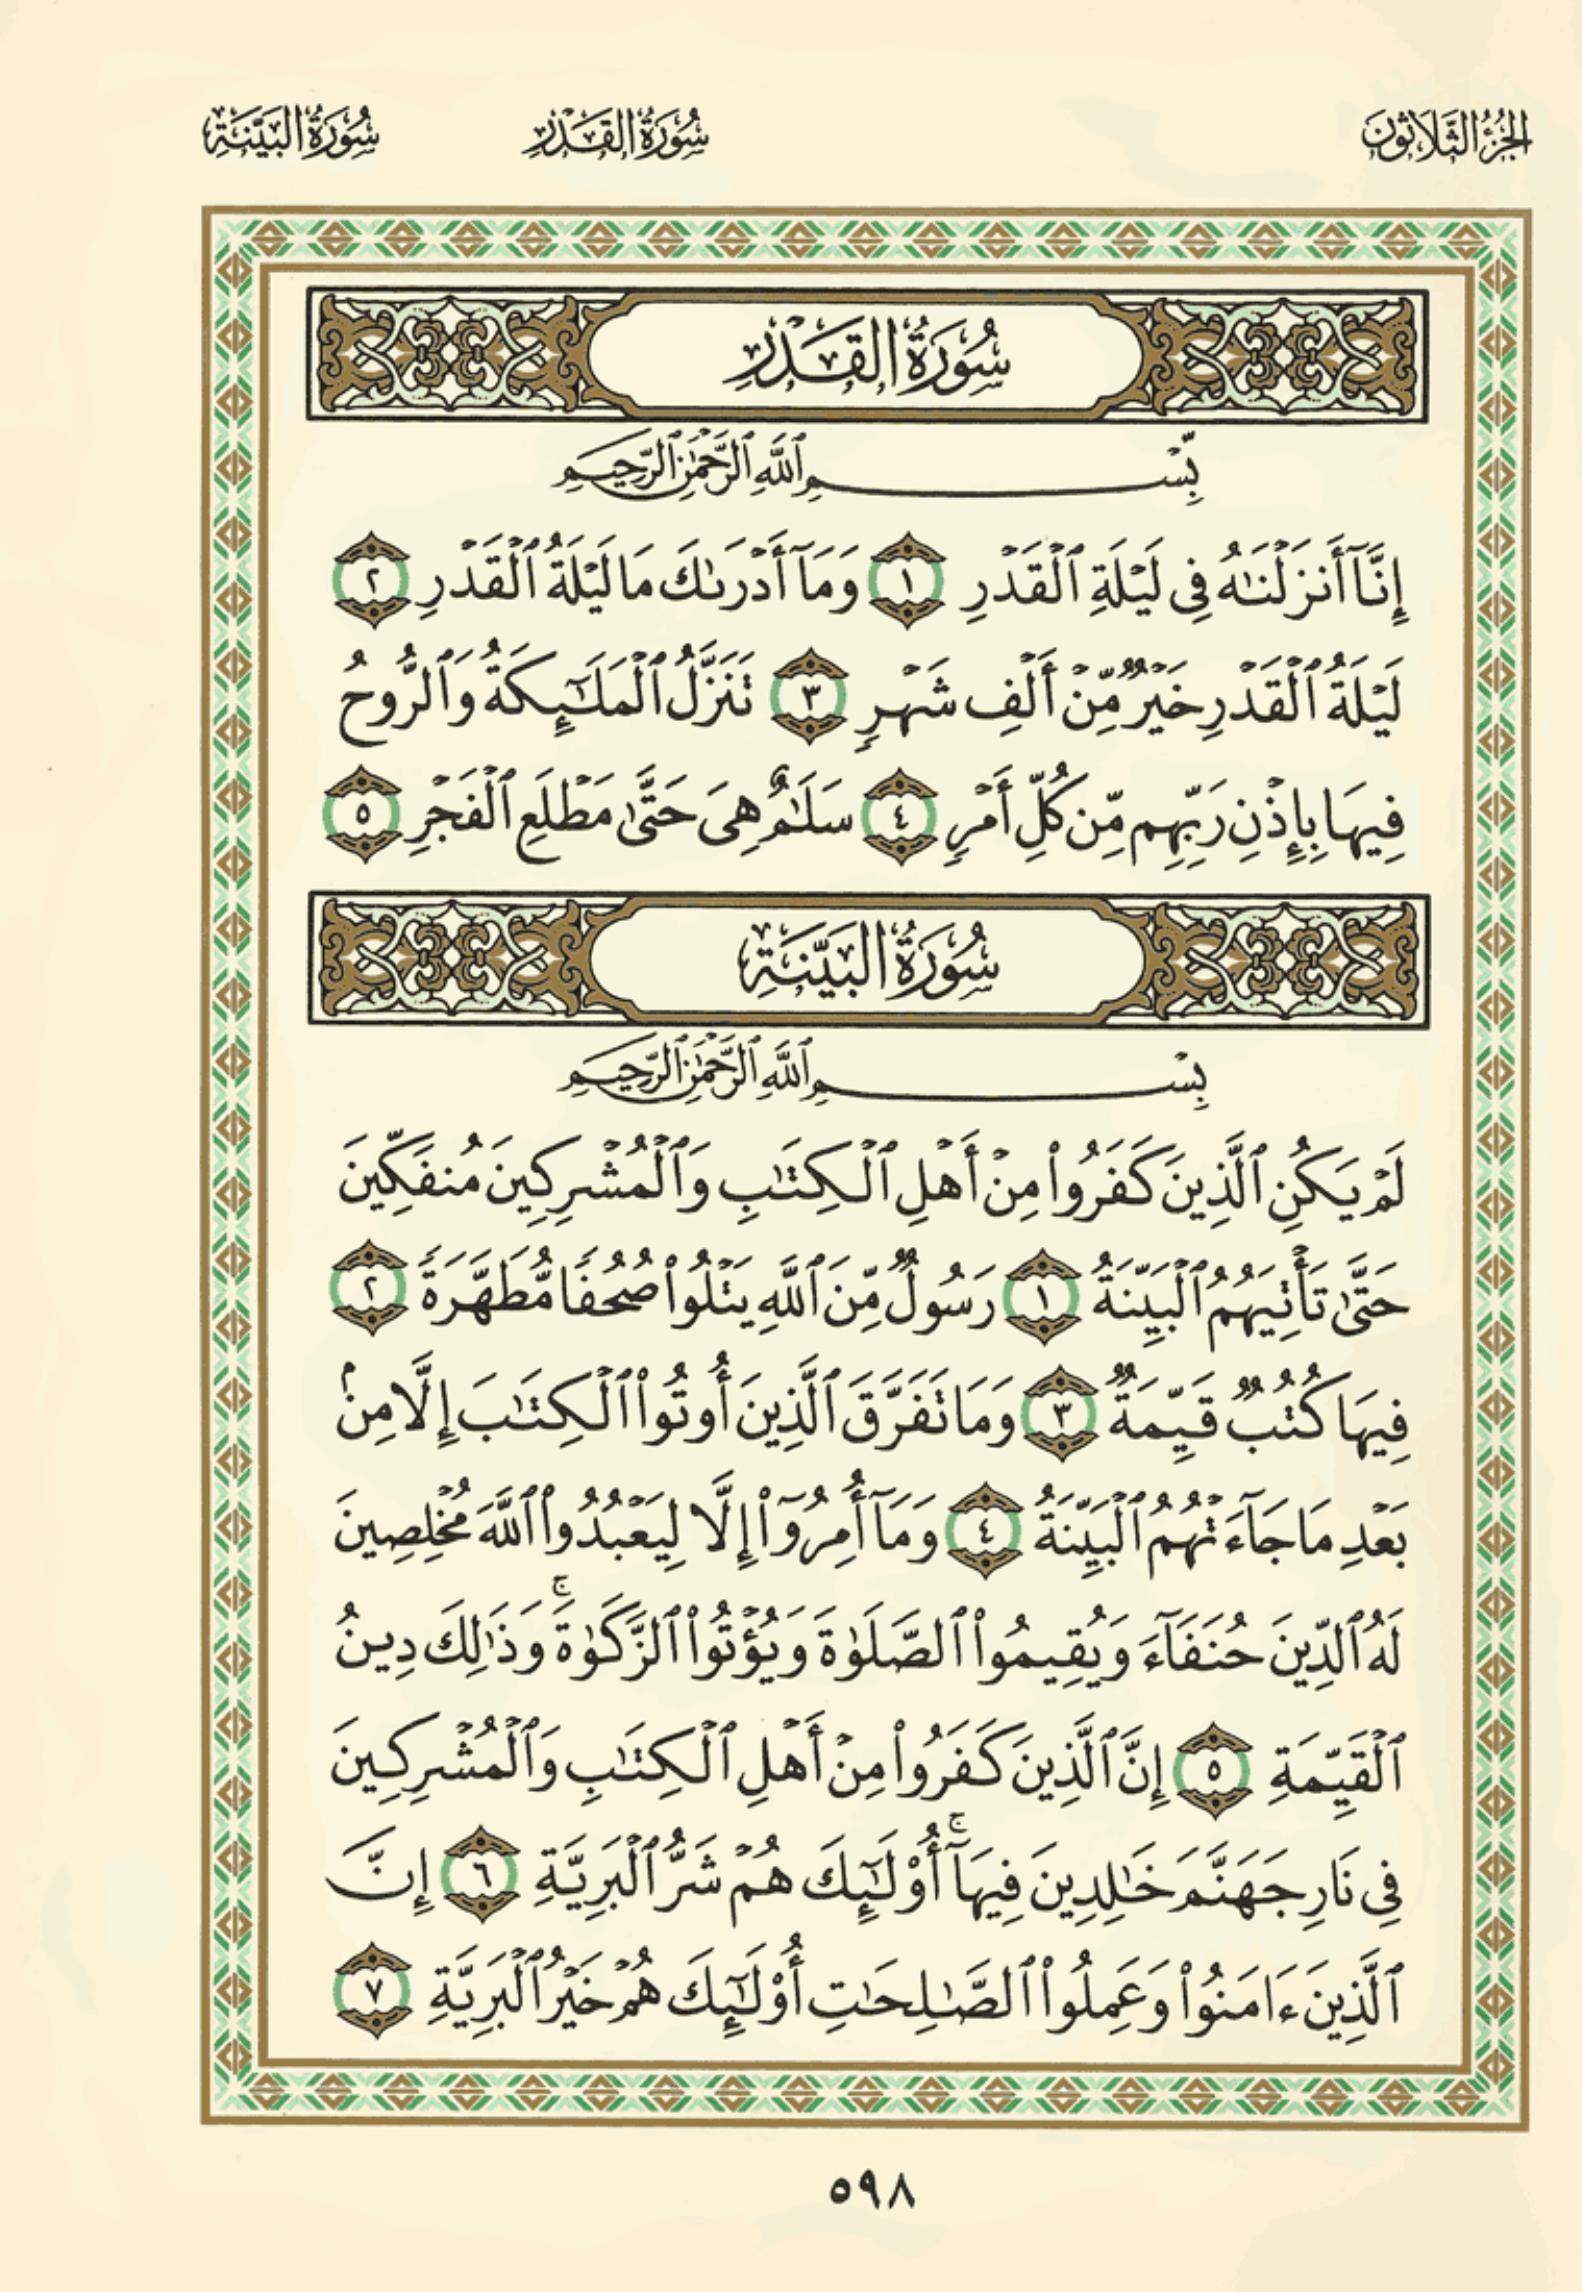 الجزء الثلاثون سورة القدر سورة البينة
سُورَةُ القَدْرِ
بِّسْمِ ٱللَّهِ ٱلرَّحْمَٰنِ ٱلرَّحِيمِ
إِنَّآ أَنزَلْنَٰهُ فِى لَيْلَةِ ٱلْقَدْرِ ١ وَمَآ أَدْرَىٰكَ مَا لَيْلَةُ ٱلْقَدْرِ ٢
لَيْلَةُ ٱلْقَدْرِ خَيْرٌ مِّنْ أَلْفِ شَهْرٍ ٣ تَنَزَّلُ ٱلْمَلَٰٓئِكَةُ وَٱلرُّوحُ
فِيهَا بِإِذْنِ رَبِّهِم مِّن كُلِّ أَمْرٍ ٤ سَلَٰمٌ هِىَ حَتَّىٰ مَطْلَعِ ٱلْفَجْرِ ٥
سُورَةُ البَيِّنَةِ
بِسْمِ ٱللَّهِ ٱلرَّحْمَٰنِ ٱلرَّحِيمِ
لَمْ يَكُنِ ٱلَّذِينَ كَفَرُوا۟ مِنْ أَهْلِ ٱلْكِتَٰبِ وَٱلْمُشْرِكِينَ مُنفَكِّينَ
حَتَّىٰ تَأْتِيَهُمُ ٱلْبَيِّنَةُ ١ رَسُولٌ مِّنَ ٱللَّهِ يَتْلُوا۟ صُحُفًا مُّطَهَّرَةً ٢
فِيهَا كُتُبٌ قَيِّمَةٌ ٣ وَمَا تَفَرَّقَ ٱلَّذِينَ أُوتُوا۟ ٱلْكِتَٰبَ إِلَّا مِنۢ
بَعْدِ مَا جَآءَتْهُمُ ٱلْبَيِّنَةُ ٤ وَمَآ أُمِرُوٓا۟ إِلَّا لِيَعْبُدُوا۟ ٱللَّهَ مُخْلِصِينَ
لَهُ ٱلدِّينَ حُنَفَآءَ وَيُقِيمُوا۟ ٱلصَّلَوٰةَ وَيُؤْتُوا۟ ٱلزَّكَوٰةَ ۚ وَذَٰلِكَ دِينُ
ٱلْقَيِّمَةِ ٥ إِنَّ ٱلَّذِينَ كَفَرُوا۟ مِنْ أَهْلِ ٱلْكِتَٰبِ وَٱلْمُشْرِكِينَ
فِى نَارِ جَهَنَّمَ خَٰلِدِينَ فِيهَآ ۚ أُو۟لَٰٓئِكَ هُمْ شَرُّ ٱلْبَرِيَّةِ ٦ إِنَّ
ٱلَّذِينَ ءَامَنُوا۟ وَعَمِلُوا۟ ٱلصَّٰلِحَٰتِ أُو۟لَٰٓئِكَ هُمْ خَيْرُ ٱلْبَرِيَّةِ ٧
٥٩٨